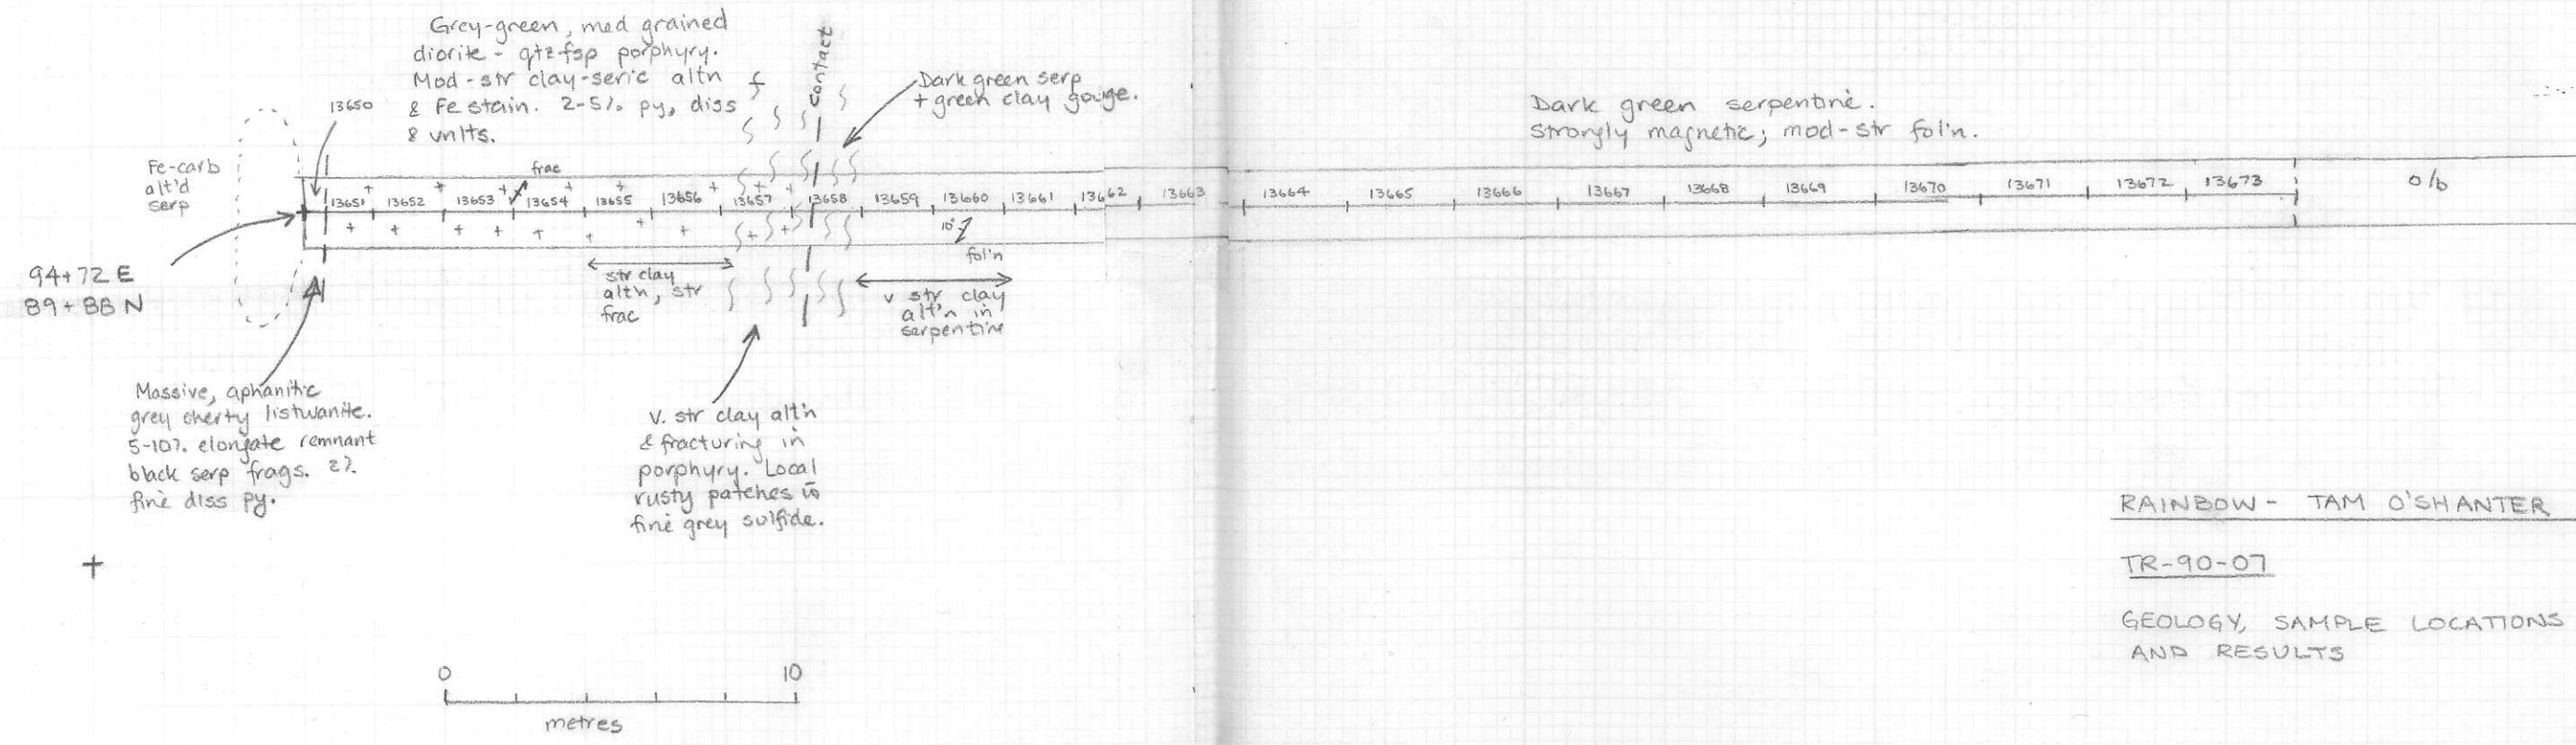 Grey-green, med grained
diorite - qtz-fsp porphyry.
Mod-str clay-seric altn
& Fe stain. 2-5% py, diss
& vnlts.
contact
Dark green serp
+ green clay gouge.
Dark green serpentine.
strongly magnetic; mod-str fol'n.
13650
Fe-carb
alt'd
serp
frac
13651 13652 13653 13654 13655 13656 13657 13658 13659 13660 13661 13662 13663 13664 13665 13666 13667 13668 13669 13670 13671 13672 13673 o/b
10°
fol'n
94+72 E
89+88 N
str clay
alt'n, str
frac
v str clay
alt'n in
serpentine
Massive, aphanitic
grey cherty listwanite.
5-10% elongate remnant
black serp frags. 2%
fine diss py.
V. str clay alt'n
& fracturing in
porphyry. Local
rusty patches w̄
fine grey sulfide.
RAINBOW - TAM O'SHANTER
TR-90-07
GEOLOGY, SAMPLE LOCATIONS
AND RESULTS
0 10
metres